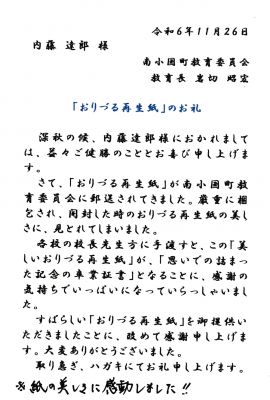 令和6年11月26日
内藤 達郎 様
南小国町教育委員会
教育長 岩切 昭宏
「おりづる再生紙」のお礼
深秋の候、内藤達郎様におかれまして
は、益々ご健勝のこととお喜び申し上げま
す。
さて、「おりづる再生紙」が南小国町教
育委員会に郵送されてきました。厳重に梱
包され、開封した時のおりづる再生紙の美し
さに、見とれてしまいました。
各校の校長先生方に手渡すと、この「美
しいおりづる再生紙」が、「思いでの詰まっ
た記念の卒業証書」となることに、感謝の
気持ちでいっぱいになっていらっしゃいまし
た。
すばらしい「おりづる再生紙」を御提供い
ただきましたことに、改めて感謝申し上げま
す。大変ありがとうございました。
取り急ぎ、ハガキにてお礼申し上げます。
※紙の美しさに感動しました!!